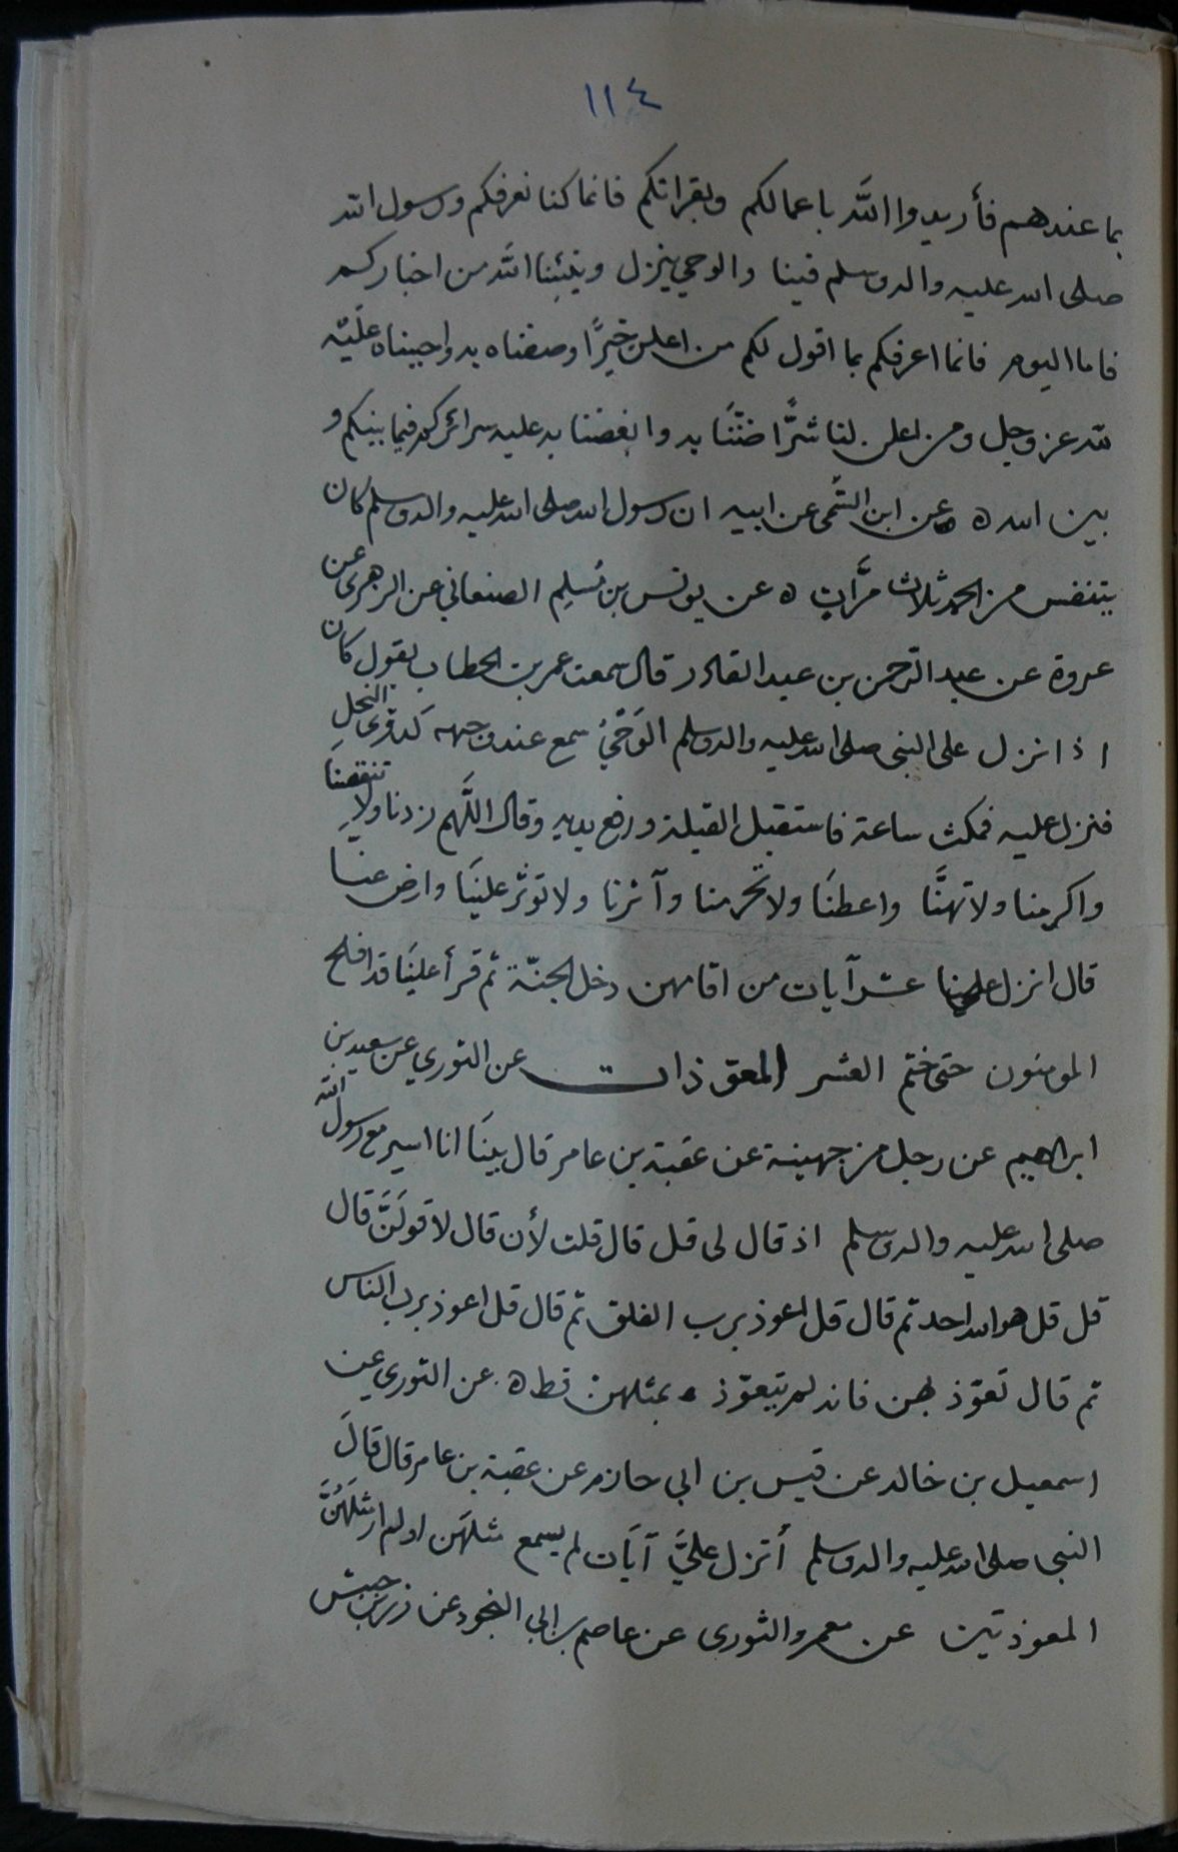 ١١٤
بما عندهم فأريدوا اللّه باعمالكم وبقراتكم فانما كنا نعرفكم ورسول الله
صلى الله عليه واله وسلم فينا والوحي ينزل وينبئنا الله من اخباركم
فاما اليوم فانما اعرفكم بما اقول لكم من اعلن خيرًا وصفناه به واجبناه عليه
لله عز وجل ومن اعلن لنا شرًّا ضننّا به وابغضنا به عليه سرائركم فيما بينكم و
بين الله ه عن ابن التيمى عن ابيه ان رسول الله صلى الله عليه واله وسلم كان
يتنفس من الحمد ثلاث مرَّاتٍ ه عن يونس بن سُليم الصنعاني عن الزهرى عن
عروة عن عبد الرحمن بن عبد القادر قال سمعت عمر بن الخطاب يقول كان
اذا نزل على النبى صلى الله عليه واله وسلم الوَحْيُ سمع عند وجهه كدوى النحلِ
فنزل عليه فمكث ساعة فاستقبل القبلة ورفع يديه وقال اللَّهم زدنا ولا تنقصنا
واكرمنا ولا تهنَّا واعطنَا ولا تحرمنا وآثرنا ولا تؤثر علينَا وارض عنا
قال انزل علينا عشر آيات من اقامهن دخل الجنّة ثم قرأ علينَا قد افلح
المومنون حتى ختم العشر المعوذات عن الثوري عن سعيد بن
ابراهيم عن رجل من جهينة عن عقبة بن عامر قال بينَا انا اسير مع رسول الله
صلى الله عليه واله وسلم اذ قال لى قل قال قلت لأن قال لاقولَنَّ قال
قل قل هو الله احد ثم قال قل اعوذ برب الفلق ثم قال قل اعوذ برب الناس
ثم قال تعوّذ بهن فانه لم يتعوّذ بمثلهن قط ه عن الثورى عن
اسمعيل بن خالد عن قيس بن ابى حازم عن عقبة بن عامر قال قالَ
النبى صلى الله عليه واله وسلم أنزل عليَّ آيَات لم يسمع مثلهَن اولم ار مثلَهُنَّ
المعوذتين عن معمر والثورى عن عاصم بن ابى النجود عن زر بن حبيش